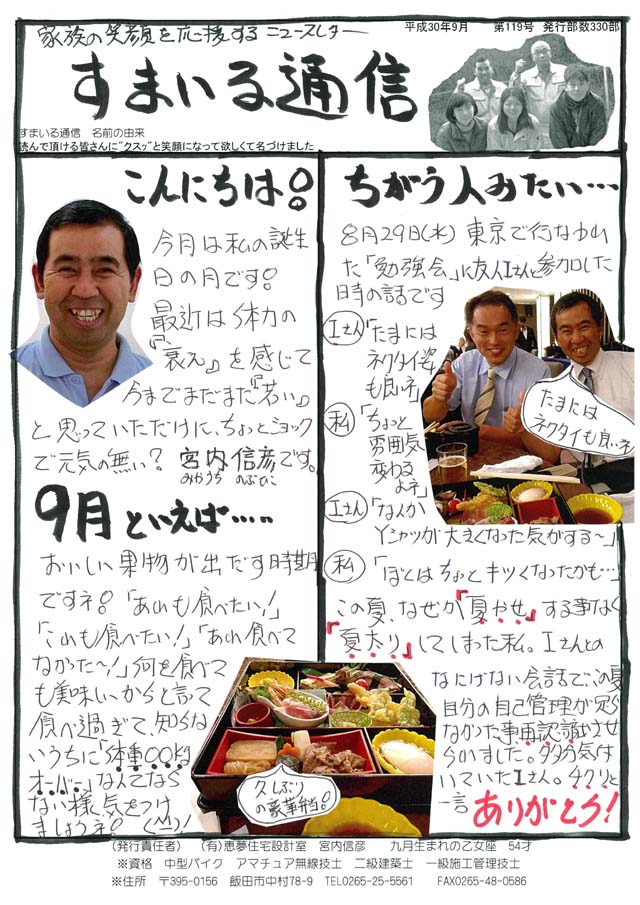 家族の笑顔を応援するニュースレター
平成30年9月　第119号　発行部数330部
すまいる通信
すまいる通信　名前の由来
読んで頂ける皆さんに"クスッ"と笑顔になって欲しくて名づけました
こんにちは!
今月は私の誕生
日の月です!
最近は体力の
『衰え』を感じて
今までまだまだ『若い』
と思っていただけに、ちょっとショック
で元気の無い?宮内信彦です。
みやうち のぶひこ
9月といえば‥‥
おいしい果物が出だす時期
ですネ!「あれも食べたい!」
「これも食べたい!」「あれ食べて
なかった～!」何を食べて
も美味しいからと言って
食べ過ぎて、知らな
いうちに「体重〇〇kg
オーバー」なんてなら
ない様、気をつけ
ましょうネ!(^^)!
久しぶり
の豪華弁当!
ちがう人みたい…
8月29日(水)東京で行なわれ
た「勉強会」に友人Iさんと参加した
時の話です
Iさん「たまには
ネクタイ姿
も良いネ」
私「ちょっと
雰囲気
変わる
よネ」
Iさん「なんか
Yシャツが大きくなった気がする～」
私「ぼくはちょっとキツくなったかも…」
たまには
ネクタイも良いネ
この夏、なぜか『夏やせ』する事なく
『夏太り』してしまった私。Iさんとの
なにげない会話で、この夏
自分の自己管理が足ら
なかった事再認識させ
らいました。多分気付
いていたIさん。チクリと
一言 ありがとう!
(発行責任者)　(有)恵夢住宅設計室　宮内信彦　　九月生まれの乙女座　54才
※資格　中型バイク　アマチュア無線技士　二級建築士　一級施工管理技士
※住所　〒395-0156　飯田市中村78-9　TEL0265-25-5561　　FAX0265-48-0586